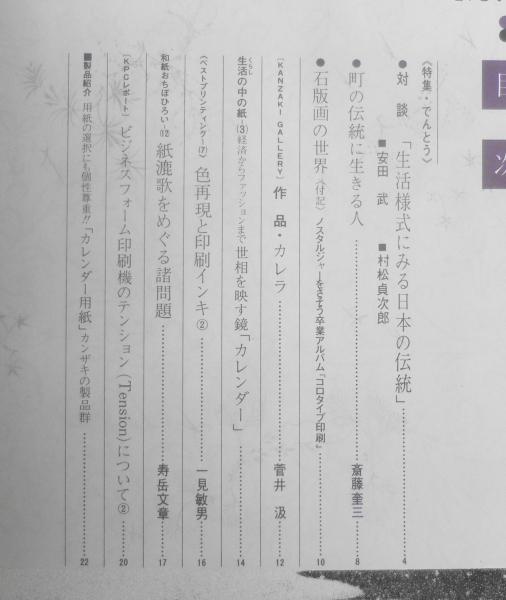 目次
《特集・でんとう》
●対談 「生活様式にみる日本の伝統」 4
■安田 武 ■村松貞次郎
●町の伝統に生きる人 斎藤奎三 8
●石版画の世界〈付記〉ノスタルジャーをさそう卒業アルバム「コロタイプ印刷」 10
〔KANZAKI GALLERY〕 作品・カレラ 菅井 汲 12
生活の中の紙―(3)経済からファッションまで 世相を映す鏡「カレンダー」 14
くらし
〈ベストプリンティング―(7)〉 色再現と印刷インキ② 一見敏男 16
和紙おちぼひろい―(12) 紙漉歌をめぐる諸問題 寿岳文章 17
〔KPCレポート〕 ビジネスフォーム印刷機のテンション(Tension)について② 20
■製品紹介 用紙の選択にも個性尊重!!「カレンダー用紙」カンザキの製品群 22